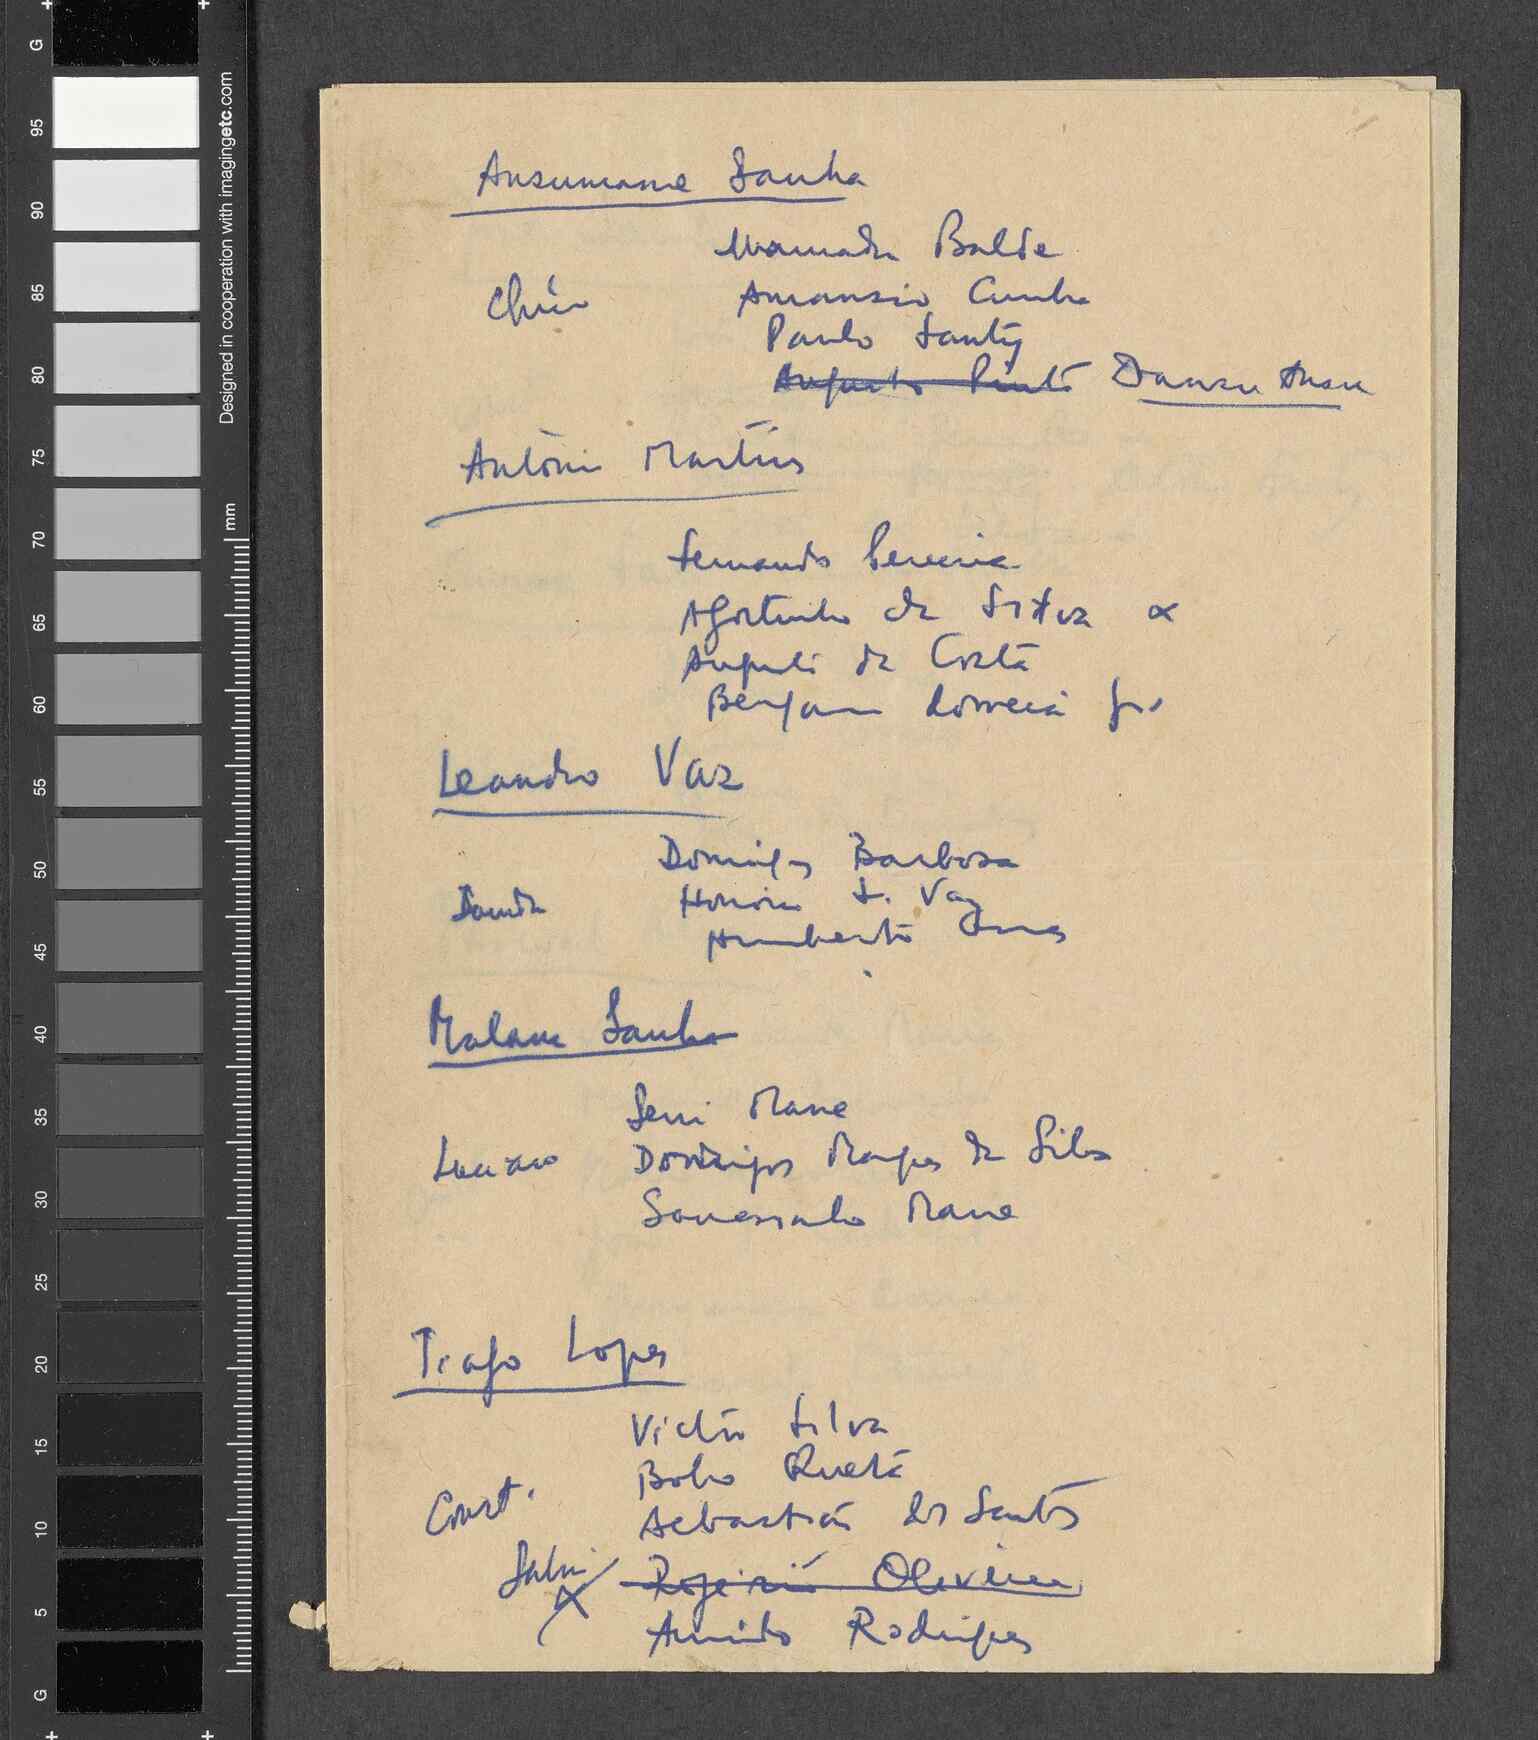 Ansumane Sanha
Mamadu Balde
Chico Amansio Cunha
Paulo Santy
Augusto Pinto Dansu
António Martins
Fernando Pereira
Agostinho da Silva
Augusto da Costa
Benjamim Correia Jr.
Leandro Vaz
Domingos Barbosa
Honório S. Vaz
Humberto
Malam Sanha
Seni Mane
Luciano Domingos da Silva
Mane
Tiago Lopes
Victor Silva
Bobo Queta
Const. Sebastião dos Santos
Rogério Oliveira
Armindo Rodrigues
G
95
90
85
80
75
70
65
60
55
50
45
40
35
30
25
20
15
10
5
G
Designed in cooperation with imagingetc.com
mm